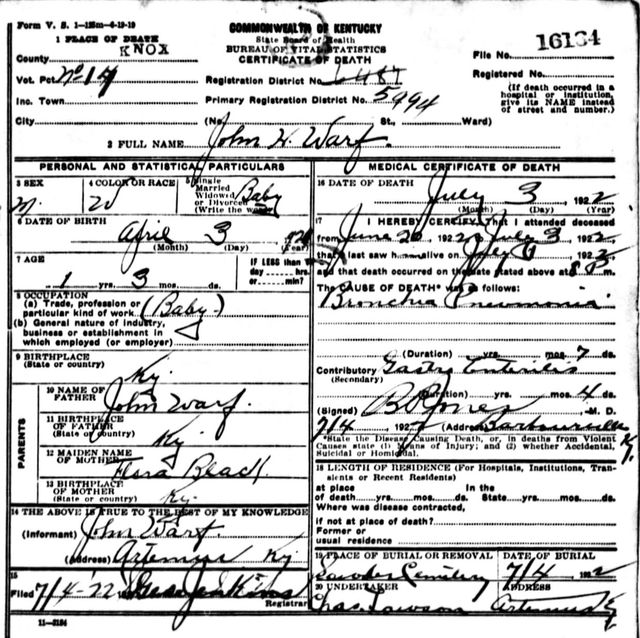 Form V. S. 1—125m—6-19-19
COMMONWEALTH OF KENTUCKY
State Board of Health
BUREAU OF VITAL STATISTICS
CERTIFICATE OF DEATH
1 PLACE OF DEATH
County KNOX
File No. 16134
Vot. Pct. No 14
Registration District No.
Registered No.
Inc. Town
Primary Registration District No. 5994
(If death occurred in a hospital or institution, give its NAME instead of street and number.)
City (No. St., Ward)
2 FULL NAME John W. Warf.
PERSONAL AND STATISTICAL PARTICULARS
3 SEX M.
4 COLOR OR RACE W
5 Single Married Widowed or Divorced (Write the word) Baby
6 DATE OF BIRTH April 3
(Month) (Day) (Year)
7 AGE 1 yrs. 3 mos. ds.
IF LESS than day hrs. or min.?
8 OCCUPATION
(a) Trade, profession or particular kind of work (Baby)
(b) General nature of industry, business or establishment in which employed (or employer)
9 BIRTHPLACE
(State or country) Ky.
PARENTS
10 NAME OF FATHER John Warf.
11 BIRTHPLACE OF FATHER
(State or country) Ky
12 MAIDEN NAME OF MOTHER Flora Black.
13 BIRTHPLACE OF MOTHER
(State or country) Ky.
14 THE ABOVE IS TRUE TO THE BEST OF MY KNOWLEDGE
(Informant) John Warf.
(Address) Artemus Ky
15
Filed 7/4-22 Jenkins
Registrar
11—3184
MEDICAL CERTIFICATE OF DEATH
16 DATE OF DEATH July 3, 1922
(Month) (Day) (Year)
17 I HEREBY CERTIFY, That I attended deceased
from June 20, 1922 July 3 1922
that I last saw h alive on 1922
and that death occurred on the date stated above at 8 m.
The CAUSE OF DEATH* was as follows:
Bronchia Pneumonia
(Duration) yrs. mos. 7 ds.
Contributory Gastro Enteritis
(Secondary)
(Duration) yrs. mos. 4 ds.
(Signed) Jones M. D.
7/4 192 (Address) Barbourville Ky.
*State the Disease Causing Death, or, in deaths from Violent
Causes state (1) Means of Injury; and (2) whether Accidental,
Suicidal or Homicidal.
18 LENGTH OF RESIDENCE (For Hospitals, Institutions, Transients or Recent Residents)
at place of death yrs. mos. ds. In the State yrs. mos. ds.
Where was disease contracted,
if not at place of death?
Former or
usual residence
19 PLACE OF BURIAL OR REMOVAL
Cemetery
DATE OF BURIAL
7/4 1922
20 UNDERTAKER
Chas Lawson
ADDRESS
Artemus Ky